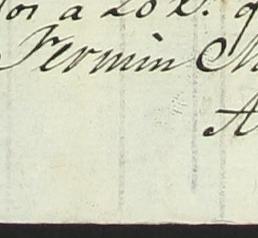 for a 20 D. 
Fermin M
A